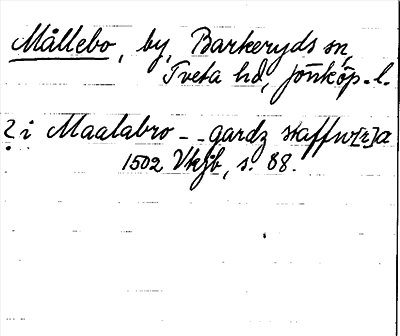 Mållebo, by, Barkeryds sn,
Tveta hd, Jönköp. l.
? i Maalabro - - gardz staffw[r]a
1502 Vkjb, s. 88.